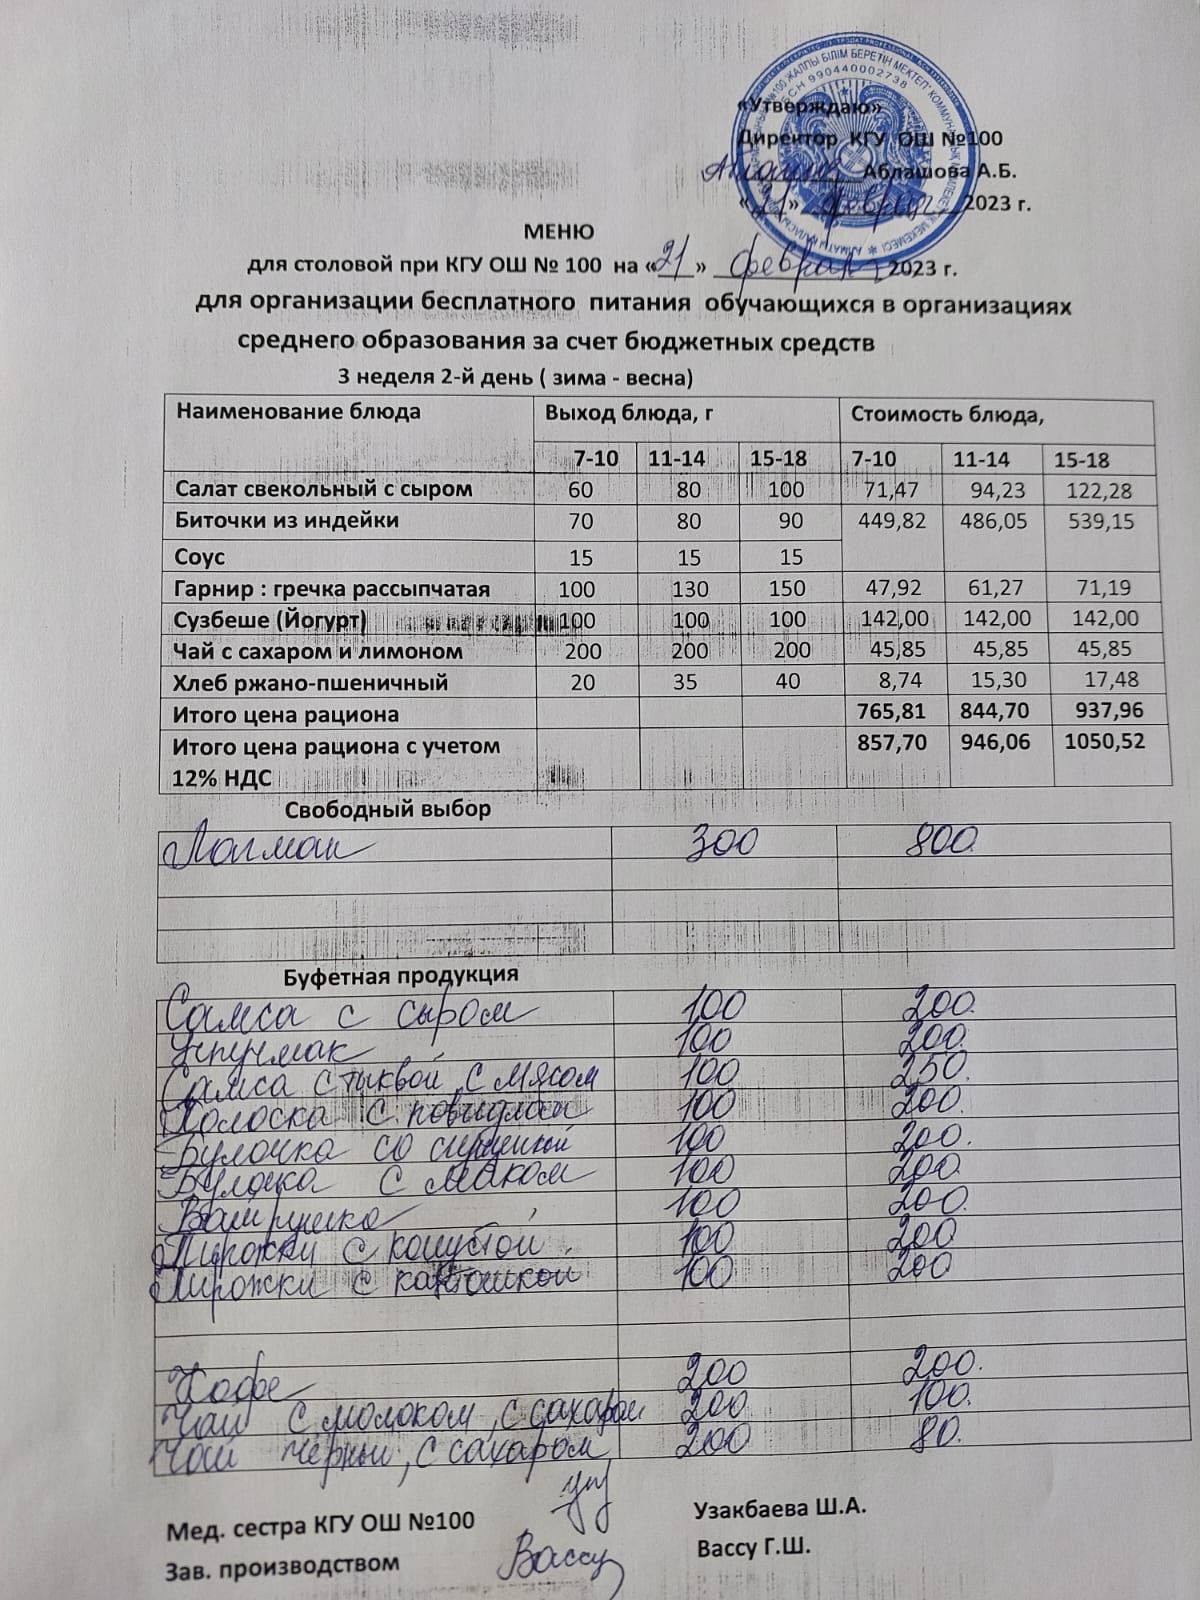 «Утверждаю»
Директор КГУ ОШ №100
Аблашова А.Б.
«21» февраля 2023 г.
МЕНЮ
для столовой при КГУ ОШ № 100 на «21» февраля 2023 г.
для организации бесплатного питания обучающихся в организациях
среднего образования за счет бюджетных средств
3 неделя 2-й день ( зима - весна)
Наименование блюда Выход блюда, г Стоимость блюда,
7-10 11-14 15-18 7-10 11-14 15-18
Салат свекольный с сыром 60 80 100 71,47 94,23 122,28
Биточки из индейки 70 80 90 449,82 486,05 539,15
Соус 15 15 15
Гарнир : гречка рассыпчатая 100 130 150 47,92 61,27 71,19
Сузбеше (Йогурт) 100 100 100 142,00 142,00 142,00
Чай с сахаром и лимоном 200 200 200 45,85 45,85 45,85
Хлеб ржано-пшеничный 20 35 40 8,74 15,30 17,48
Итого цена рациона 765,81 844,70 937,96
Итого цена рациона с учетом 857,70 946,06 1050,52
12% НДС
Свободный выбор
Лагман 300 800.
Буфетная продукция
Самса с сыром 100 200.
Учпучмак 100 200.
Самса с тыквой, с мясом 100 250.
Полоска с повидлом 100 200.
Булочка со сгущенкой 100 200.
Булочка с маком 100 200
Ватрушка 100 200.
Пирожки с капустой 100 200
Пирожки с картошкой 100 200
Кофе 200 200.
Чай с молоком, с сахаром 200 100.
Чай черный, с сахаром 200 80.
Мед. сестра КГУ ОШ №100 Узакбаева Ш.А.
Зав. производством Вассу Вассу Г.Ш.